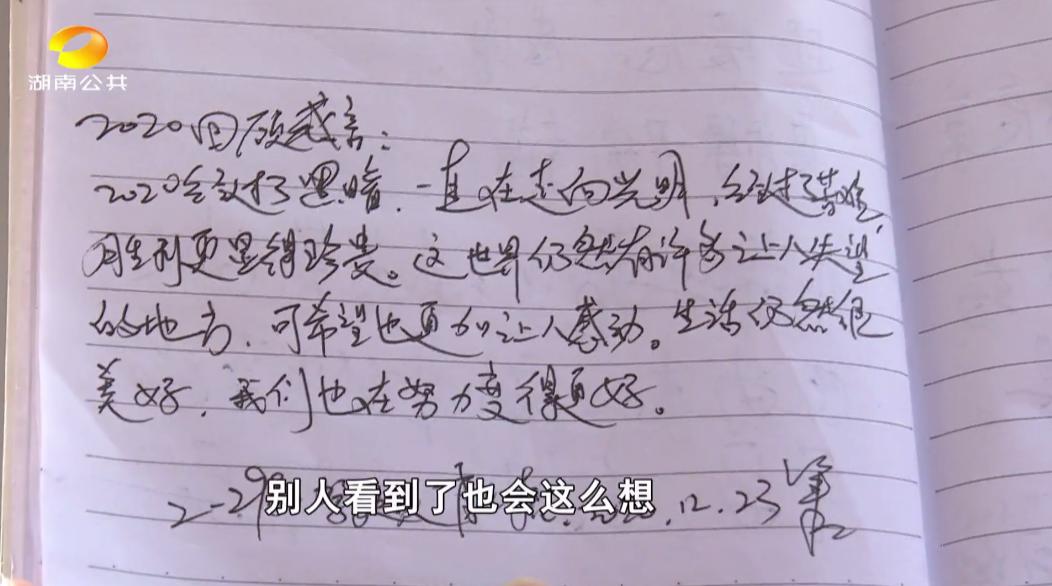 湖南公共
2020回顾感言：
2020经过了黑暗，一直在走向光明，经过了苦难，
胜利更显得珍贵。这世界仍然有许多让人失望
的地方，可希望也更加让人感动。生活仍然很
美好，我们也在努力变得更好。
别人看到了也会这么想
12.23